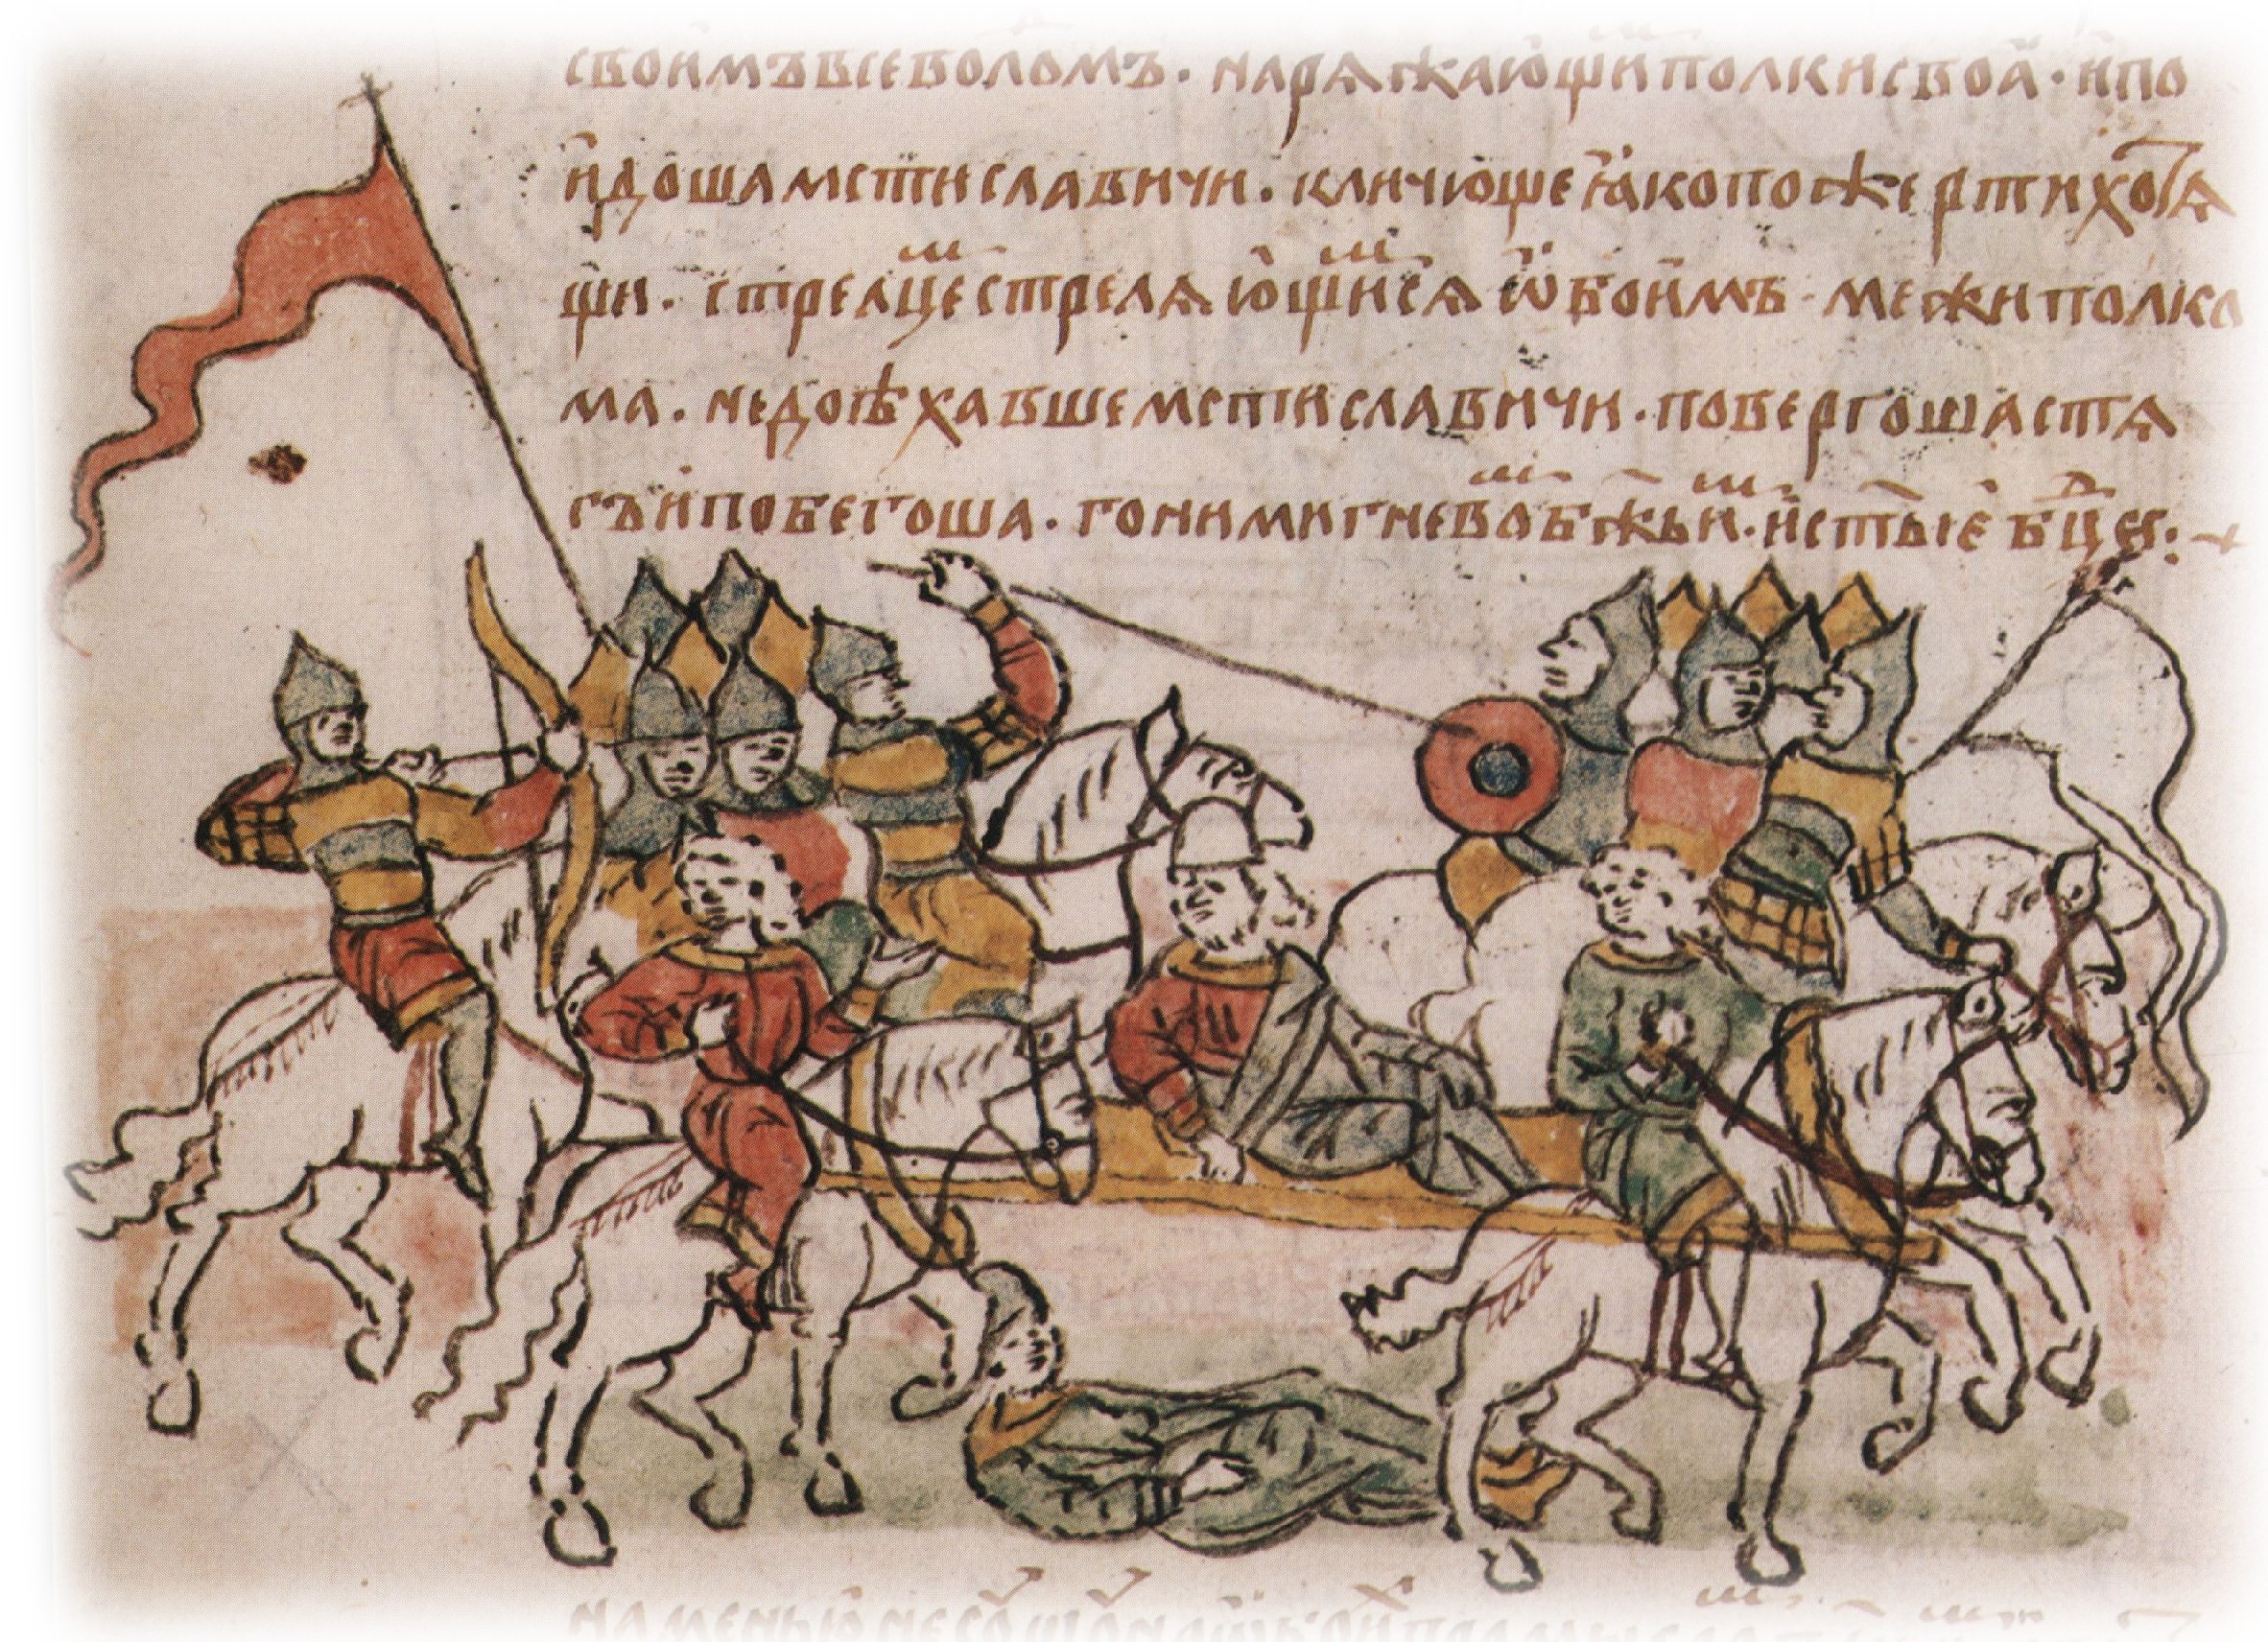 своимъ всеволомъ · нарѧжающи полки своа · и по
идоша мстиславичи · кличюще ꙗко пожерти хотѧ
щи · стрелцеⷨ стрелѧющиⷨсѧ ѡбоимъ · межи полко
ма · не доѣхавше мстиславичи · повергоша стѧ
гъ и побегоша · гоними гневоⷨ бж҃ьиⷨ · и ст҃ыіе